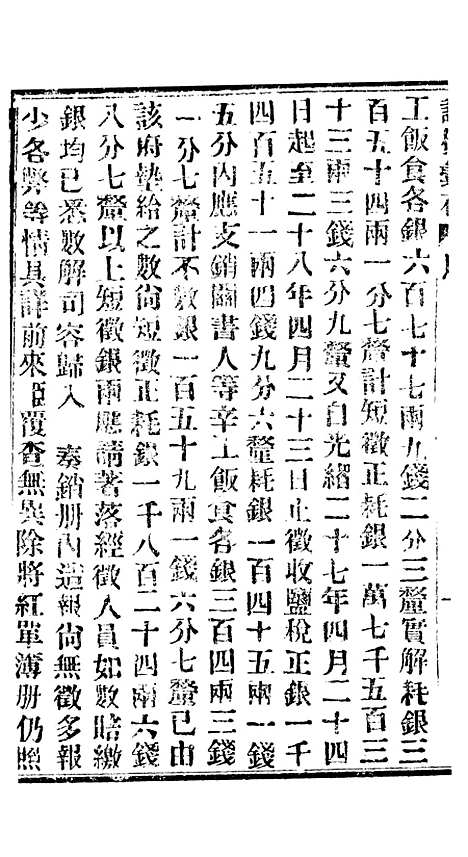 工飯食各銀六百七十七兩九錢二分三釐實解耗銀三
百五十四兩一分七釐計短徵正耗銀一萬七千五百三
十三兩三錢六分九釐又自光緒二十七年四月二十四
日起至二十八年四月二十三日止徵收鹽稅正銀一千
四百五十一兩四錢九分六釐耗銀一百四十五兩一錢
五分內應支銷關書人等辛工飯食各銀三百四兩三錢
一分七釐計不敷銀一百五十九兩一錢六分七釐已由
該府墊給之數尙短徵正耗銀一千八百二十四兩六錢
八分七釐以上短徵銀兩應請著落經徵人員如數賠繳
銀均已悉數解司容歸入 奏銷册內造報尙無徵多報
少各弊等情具詳前來臣覆查無異除將紅單薄册仍照